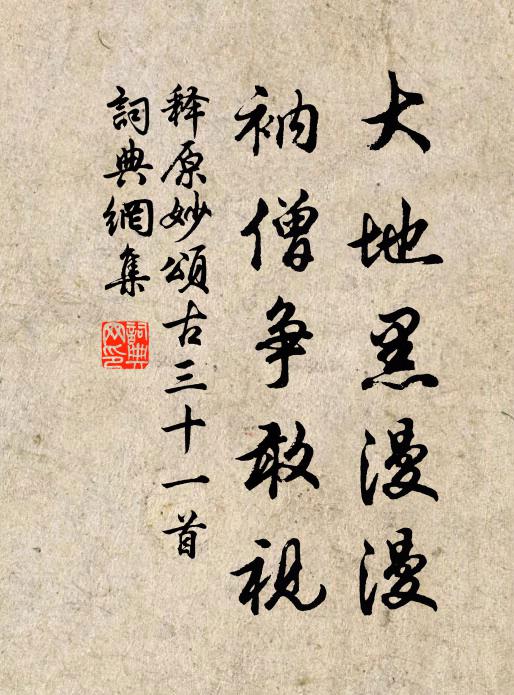 大地黑漫漫
衲僧争敢視
释原妙頌古三十一首
詞典網集
詞典
网印